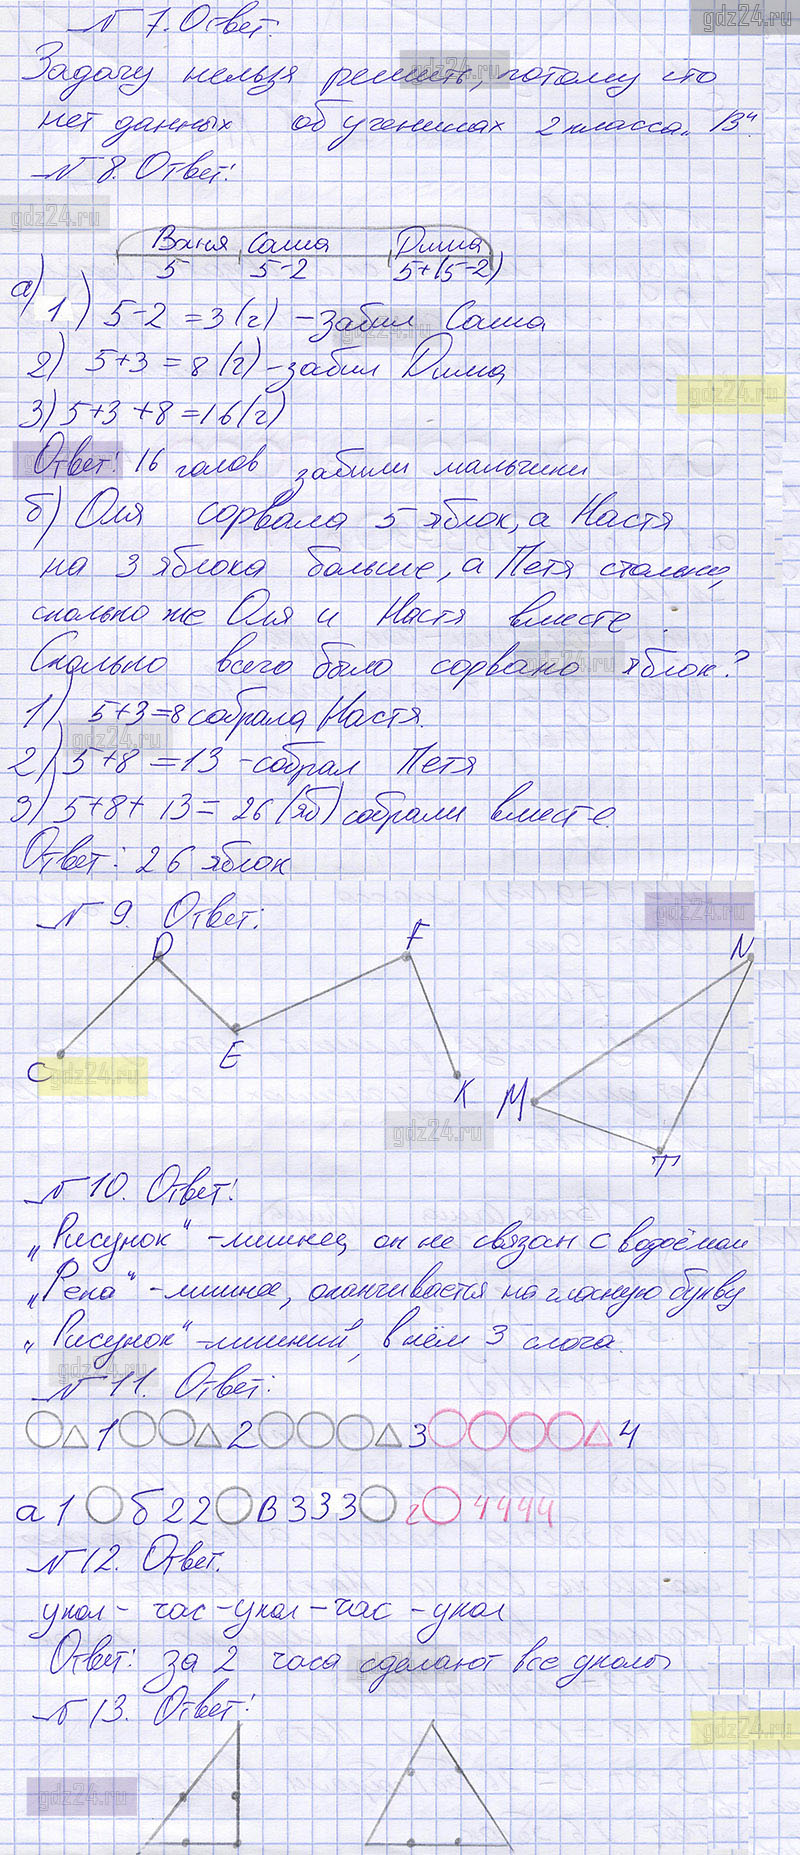 gdz24.ru
№ 7. Ответ:
gdz24.ru
Задачу нельзя решить, потому что
нет данных об учениках 2 класса „В“.
№ 8. Ответ:
gdz24.ru
Ваня Саша Дима
5 5-2 5+(5-2)
а) 1) 5-2=3 (г) - забил Саша
gdz24.ru
2) 5+3=8 (г) - забил Дима
gdz24.ru
3) 5+3+8=16 (г)
gdz24.ru
Ответ: 16 голов забили мальчики
б) Оля сорвала 5 яблок, а Настя
на 3 яблока больше, а Петя столько,
сколько же Оля и Настя вместе.
Сколько всего было сорвано яблок?
gdz24.ru
1) 5+3=8 собрала Настя.
gdz24.ru
2) 5+8=13 - собрал Петя
3) 5+8+13=26 (яб) собрали вместе.
Ответ: 26 яблок
№ 9. Ответ:
gdz24.ru
D F N
C E K M T
gdz24.ru
gdz24.ru
№ 10. Ответ:
„Рисунок“ - лишнее, он не связан с водоёмом
„Репа“ - лишнее, оканчивается на гласную букву
„Рисунок“ - лишний, в нём 3 слога.
gdz24.ru
№ 11. Ответ:
1 2 3 4
а 1 б 2 2 в 3 3 3 г 4 4 4 4
№ 12. Ответ.
укол - час - укол - час - укол
Ответ: за 2 часа сделают все уколы
gdz24.ru
№ 13. Ответ:
gdz24.ru
gdz24.ru